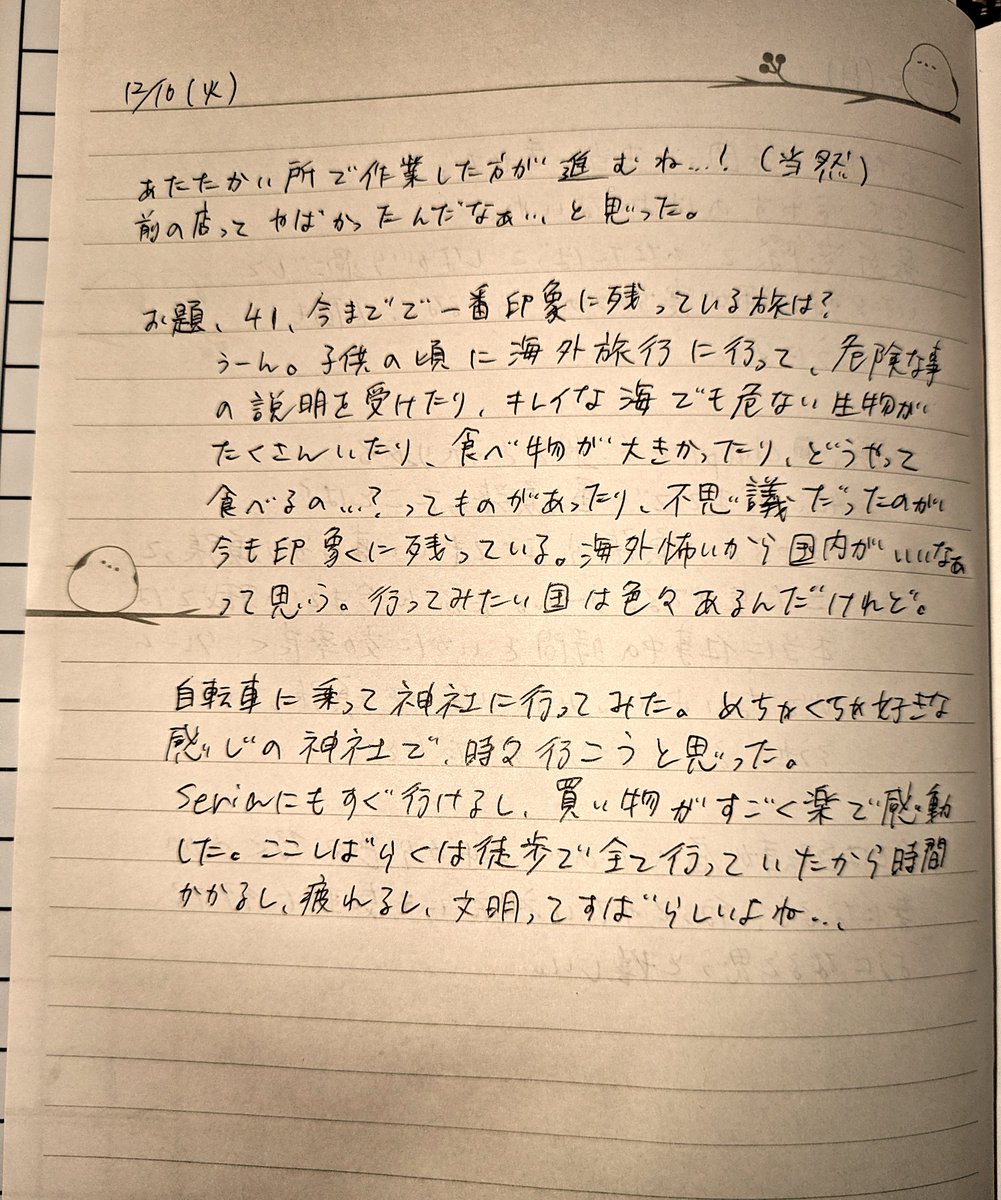 12/16(火)
あたたかい所で作業した方が進むね…!(当然)
前の店ってやばかったんだなぁ…と思った。
お題、41、今までで一番印象に残っている旅は?
うーん。子供の頃に海外旅行に行って、危険な事
の説明を受けたり、キレイな海でも危ない生物が
たくさんいたり、食べ物が大きかったり、どうやって
食べるの…?ってものがあったり、不思議だったのが
今も印象に残っている。海外怖いから国内がいいなぁ
って思う。行ってみたい国は色々あるんだけれど。
自転車に乗って神社に行ってみた。めちゃくちゃ好きな
感じの神社で、時々行こうと思った。
Seriaにもすぐ行けるし、買い物がすごく楽で感動
した。ここしばらくは徒歩で全て行っていたから時間
かかるし、疲れるし、文明ってすばらしいよね…